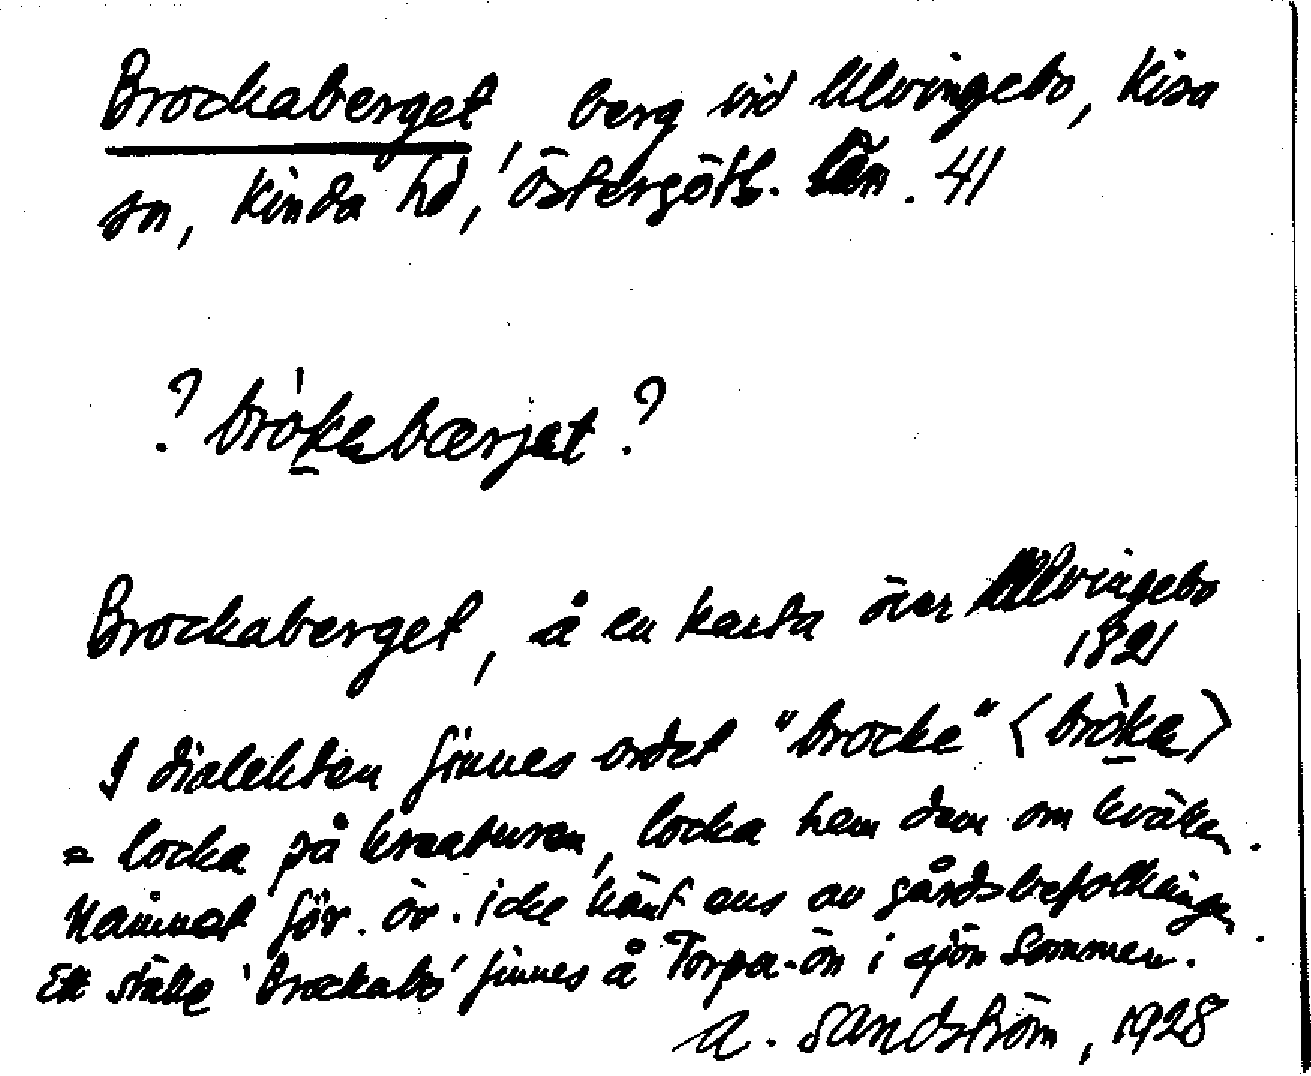 Brockaberget, berg vid Ulvingebo, Kisa
sn, Kinda hd, Östergötl. län. 41
? bròkabærjet ?
Brockaberget, å en karta över Ulvingebo
1821
I dialekten finnes ordet "brocka" <bròka>
= locka på kreaturen, locka hem dem om kvällen.
Namnet för. är. icke känt ens av gårdsbefolkningen.
Ett ställe 'Brockabo' finnes å Torpa-ön i sjön Sommen.
A. Sandström, 1928